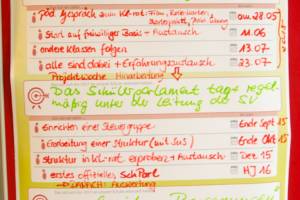 päd. Gespräch zum kl-rot: Film, am 28.05
Start auf freiwilliger Basis + Austausch 11.06
andere Klassen folgen 13.07
alle sind dabei + Erfahrungsaustausch 23.07
Projektwoche
Das Schülerparlament tagt regel-
mäßig unter der Leitung der SV
Einrichten einer Steuergruppe Ende Sept 15
Erarbeitung einer Struktur (mit SuS) Ende Okt 15
Struktur in kl-rot erproben + Austausch Dez. 15
erstes offizielles SchParl HJ 16
DANACH: Auswertung